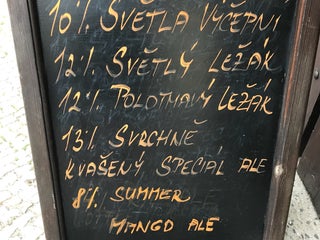 10% SVĚTLÁ VÝČEPNÍ
12% SVĚTLÝ LEŽÁK
12% POLOTMAVÝ LEŽÁK
13% SVRCHNĚ
KVAŠENÝ SPECIÁL ALE
8% SUMMER
MANGO ALE